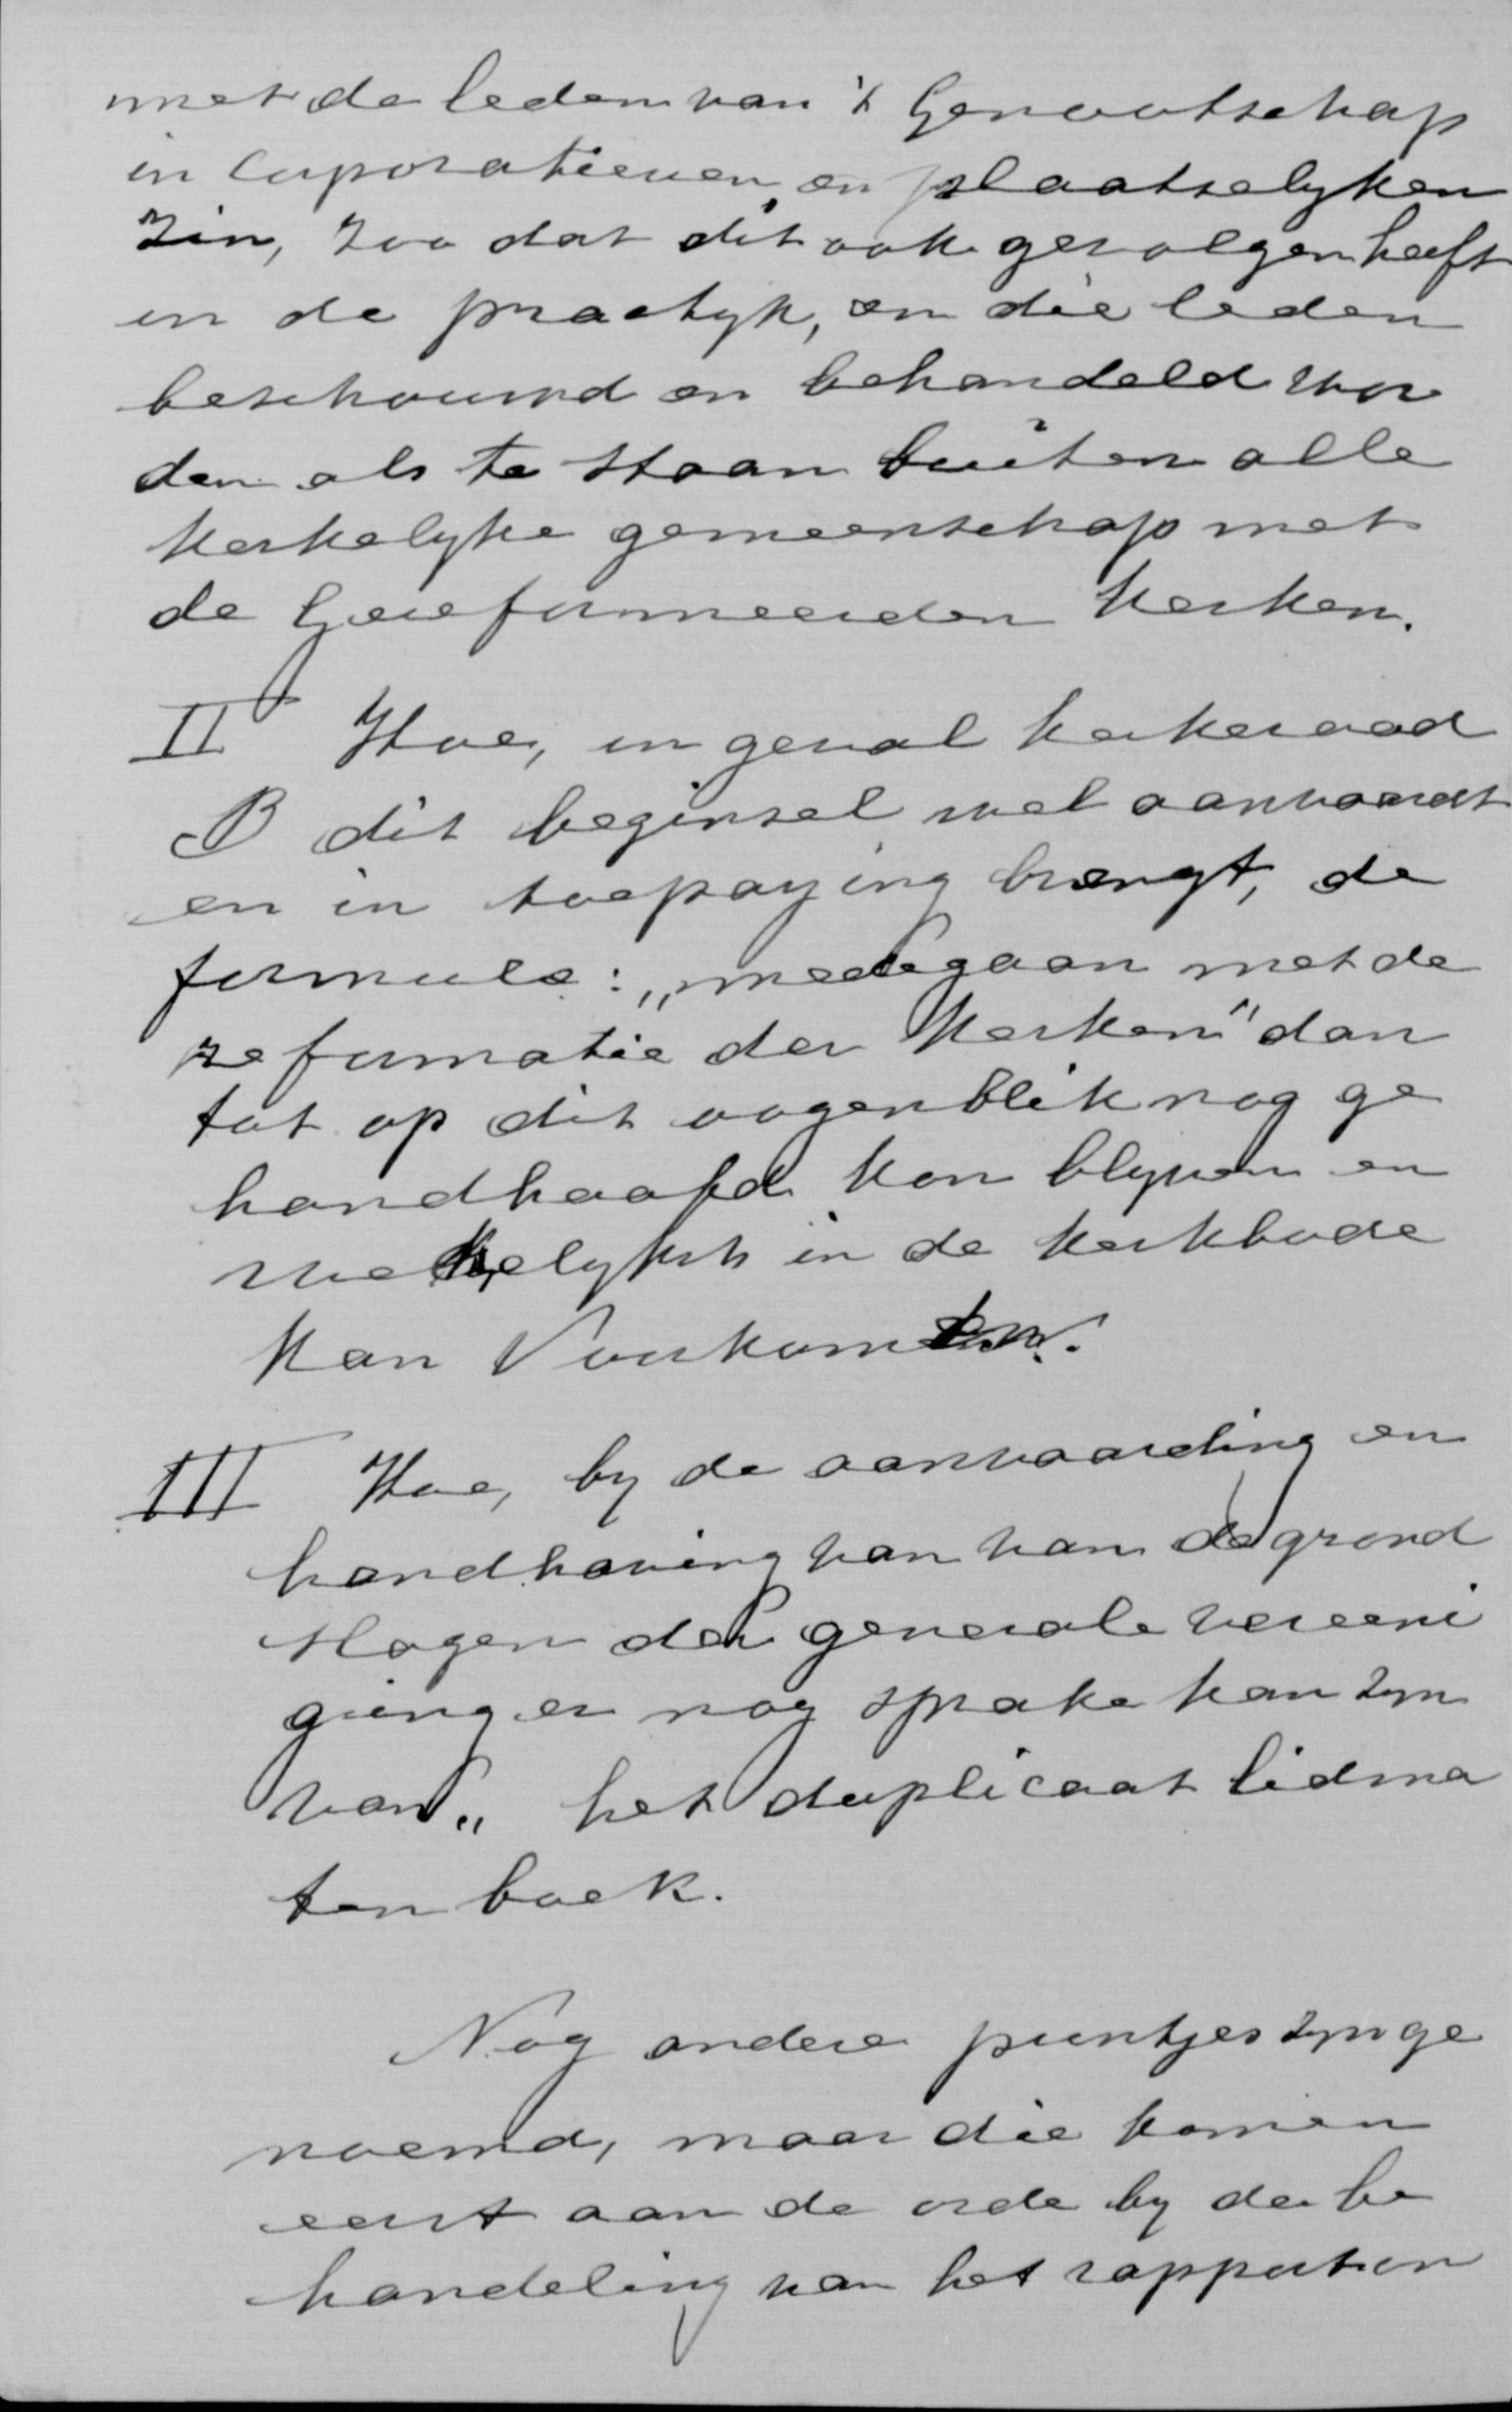 met de leden van 't Genootschap
in Corporatieven en plaatselyken
zin, zoo dat dit ook gevolgen heeft
in de practyk, en die leden
beschouwd en behandeld wor
den als te staan buiten alle
Kerkelyke gemeenschap met
de Gereformeerden Kerken.
II Hoe, in geval kerkeraad
B dit beginsel wel aanvaardt
en in toepassing brengt, de
formule: „medegaan met de
reformatie der Kerken" dan
tot op dit oogenblik nog ge
handhaafd kon blyven en
wekelyksh in de Kerkbode
Kan Voorkomen.
III Hoe, by de aanvaarding en
handhaving van van de grond
slagen der generale vereeni
ging er nog sprake kan zyn
van „ het duplicaat lidma
ten boek.
Nog andere puntjes zyn ge
noemd, maar die komen
eerst aan de orde by de be
handeling van het rapport en